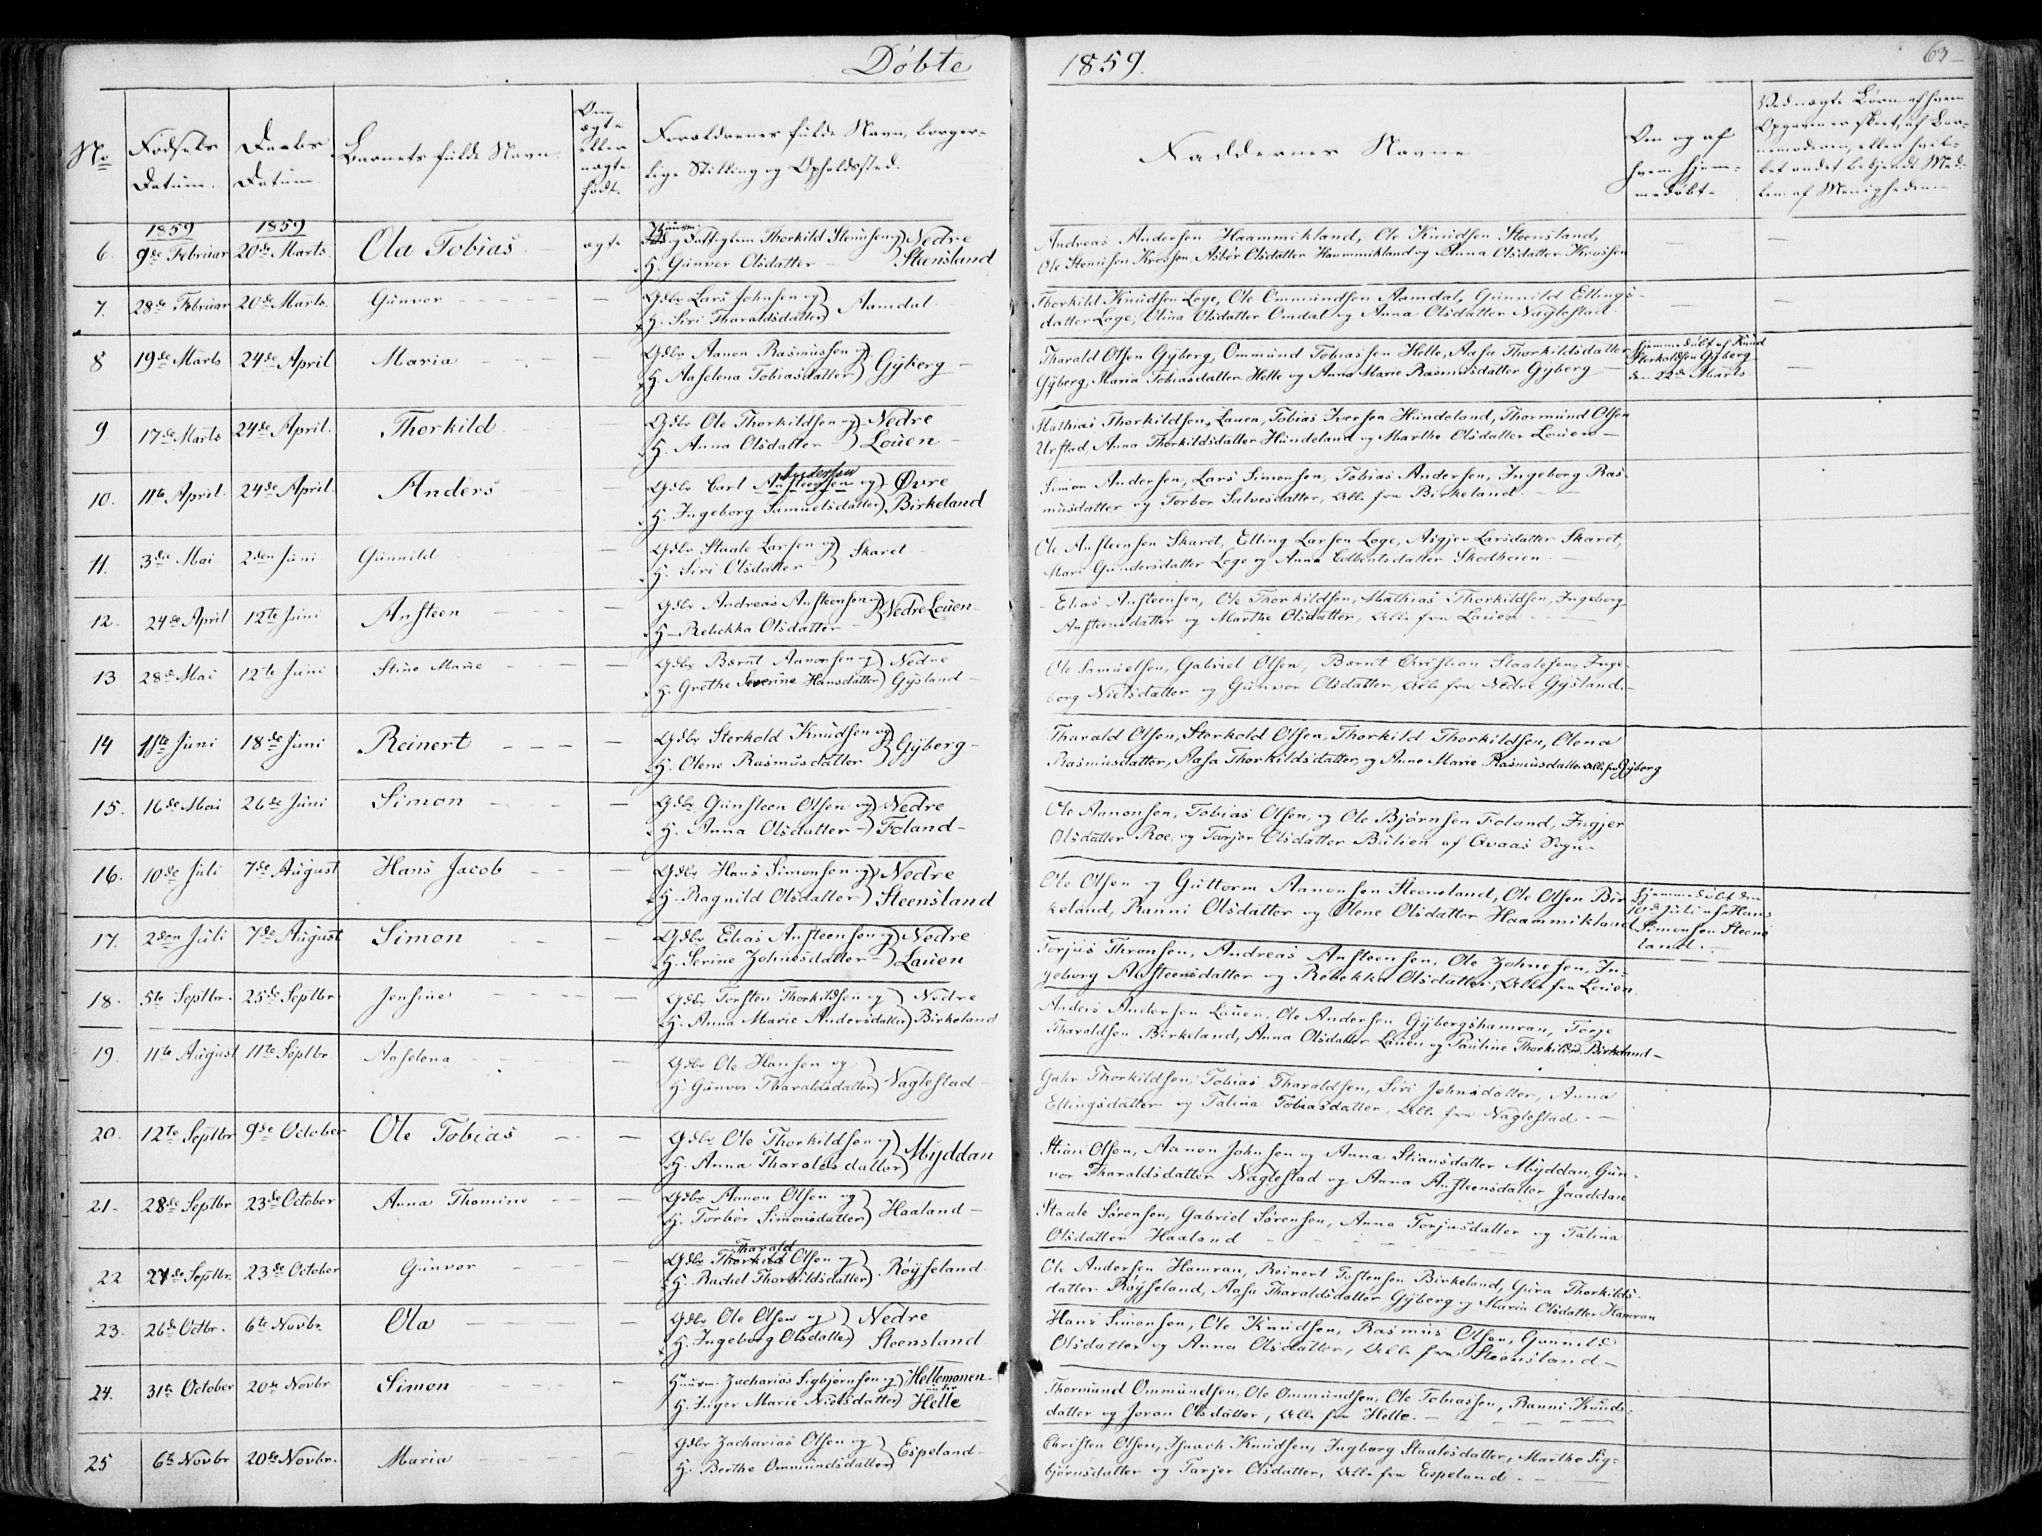 Døbte 1859. 63
No
Fødsels Datum.
Daabs Datum
Barnets fulde Navn.
Om ægte eller uægte født.
Forældrenes fulde Navn, borger-
lige Stilling og Opholdssted.
Faddernes Navne
Om og af hvem hjem-
medøbt
Ved uægte Børn af hvem
Opgaven er skeet, af Bar-
nemoderen, eller hvil-
ket andet betjende Med-
lem af Menigheden
1859 1859
6. 9de Februar 20de Marts Ola Tobias ægte Thorkild Stensen og Nedre
H. Gunvor Olsdatter Steensland
Andreas Andersen Haammikland, Ole Knudsen Steensland,
Ole Stensen Krossen, Asbor Olsdatter Haammikland og Anna Olsdatter Krossen
7. 28de Februar 20de Marts. Gunvor Gdbr Lars Johnsen og Aamdal
H. Siri Tharaldsdatter
Thorkild Knudsen Lege, Ole Ommundsen Aamdal, Gunnild Ellings-
datter Lege, Olina Olsdatter Omdal og Anna Olsdatter Naglestad.
8 19de Marts 24de April Maria Gdbr Aanen Rasmussen og Gyberg
H. Aaselena Tobiasdatter
Tharald Olsen Gyberg, Ommund Tobiassen Helle, Aasa Thorkildsdatter
Gyberg, Maria Tobiasdatter Helle og Anna Marie Rasmusdatter Gyberg
Hjemmedøbt af Knud
Sterkoldsen Gyberg
den 22de Marts
9 17de Marts 24de April. Thorkild Gdbr Ole Thorkildsen og Nedre
H. Anna Olsdatter Louen
Mathias Thorkildsen, Lauen, Tobias Iversen Hundeland, Thormund Olsen
Urstad, Anna Thorkildsdatter Hundeland og Marthe Olsdatter Louen
10. 11te April. 24de April. Anders Andersen
Gdbr Carl Ansteensen og Øvre
H. Ingeborg Samuelsdatter Birkeland
Simon Andersen, Lars Simonsen, Tobias Andersen, Ingeborg Ras-
musdatter og Torbor Salvesdatter, Alle fra Birkeland.
11. 3die Mai 2den Juni Gunnild Gdbr Staale Larsen og Skaret
H. Siri Olsdatter
Ole Ansteensen Skaret, Elling Larsen Lege, Asgjer Larsdatter Skaret,
Mari Gundersdatter Lege og Anna Eilbertsdatter Skedheien
12. 24de April 12te Juni Ansteen Gdbr Andreas Ansteensen og Nedre Louen
H. Rebekka Olsdatter
Elias Ansteensen, Ole Thorkildsen, Mathias Thorkildsen, Ingeborg
Ansteensdatter og Marthe Olsdatter, Alle fra Lauen
13 28de Mai 12te Juni Stine Marie Gdbr Bernt Aanensen og Nedre
H. Grethe Severine Hansdatter Gysland
Ole Samuelsen, Gabriel Olsen, Bernt Christian Staalesen, Inge-
borg Nielsdatter og Gunvor Olsdatter, Alle fra Nedre Gysland.
14 11te Juni 18de Juni Reinert Gdbr Sterkold Knudsen og Gyberg
H. Olene Rasmusdatter
Tharald Olsen, Sterkold Olsen, Thorkild Thorkildsen, Olena
Rasmusdatter, Aasa Thorkildsdatter, og Anne Marie Rasmusdatter Alle fra Gyberg
15. 16de Mai 26de Juni Simon Gdbr Gunsteen Olsen og Nedre
H. Anna Olsdatter Foland
Ole Aanonsen, Tobias Olsen, og Ole Bjørnsen Foland, Ingjer
Olsdatter Roe, og Tarjer Olsdatter Bulien af Qvaas Sogn
16. 10de Juli 7de August Hans Jacob Gdbr Hans Simonsen og Nedre
H. Ragnild Olsdatter Steensland
Ole Olsen og Guttorm Aanonsen Steensland, Ole Olsen Bir-
keland, Ranni Olsdatter og Olene Olsdatter Haammikland
Hjemmedøbt den
10de Juli af Hans
Simonsen Steens-
land.
17. 2den Juli 7de August Simon Gdbr Elias Ansteensen og Nedre
H. Serine Zohnesdatter Lauen
Torjus Thronsen, Andreas Ansteensen, Ole Zohnesen, In-
geborg Ansteensdatter og Rebekka Olsdatter, Alle fra Louen
18. 5te Septbr. 25de Septbr Jensine Gdbr Torsten Thorkildsen og Nedre
H. Anna Marie Andersdatter Birkeland
Anders Andersen Lauen, Ole Andersen Gybergshamran, Torje
Tharaldsen Birkeland, Anna Olsdatter Lauen og Pauline Thorkildsd. Birkeland
19. 11te August 11te Septbr Aaselena Gdbr Ole Hansen og Naglestad
H. Gunvor Tharaldsdatter
Gahr Thorkildsen, Tobias Tharaldsen, Siri Johnsdatter, Anna
Ellingsdatter og Talina Tobiasdatter, Alle fra Naglestad
20. 12te Septbr 9de October Ole Tobias Gdbr Ole Thorkildsen og Myddan
H. Anna Tharaldsdatter
Stian Olsen, Aanon Johnsen og Anna Stiansdatter Myddan, Gun-
vor Tharaldsdatter Naglestad og Anna Ansteensdatter Jaaddan
21. 28de Septbr 23de October Anna Thomine Gdbr Aanon Olsen og Haaland
H. Torbor Simonsdatter
Staale Sørensen, Gabriel Sørensen, Anna Torjusdatter og Talina
Olsdatter Haaland
22 27de Septbr. 23de October Gunvor Tharald
Gdbr Thorkild Olsen og Røyseland
H. Rachel Thorkildsdatter
Ole Andersen Hamran, Reinert Tostensen Birkeland, Gura Thorkilds-
datter Røyseland, Aasa Tharaldsdatter Gyberg og Maria Olsdatter Hamran
23. 26de Octbr. 6te Novbr Ola Gdbr Ole Olsen og Nedre
H. Ingeborg Olsdatter Steensland
Hans Simonsen, Ole Knudsen, Rasmus Olsen, Gunnild
Olsdatter og Anna Olsdatter, Alle fra Steensland
24. 31te October 20de Novbr Simon Huusm. Zacharias Sigbjørnsen og Hellemonen
under
H. Inger Marie Nielsdatter Helle
Thormund Ommundsen, Ole Ommundsen, Ole Tobiassen, Ranni Knuds-
datter og Joran Olsdatter, Alle fra Helle.
25 6te Novbr 20de Novbr. Maria Gdbr Zacharias Olsen og Espeland
H. Berthe Ommundsdatter
Christen Olsen, Isaach Knudsen, Ingbørg Staalesdatter, Marthe Sig-
bjørnsdatter og Tarjer Olsdatter, Alle fra Espeland